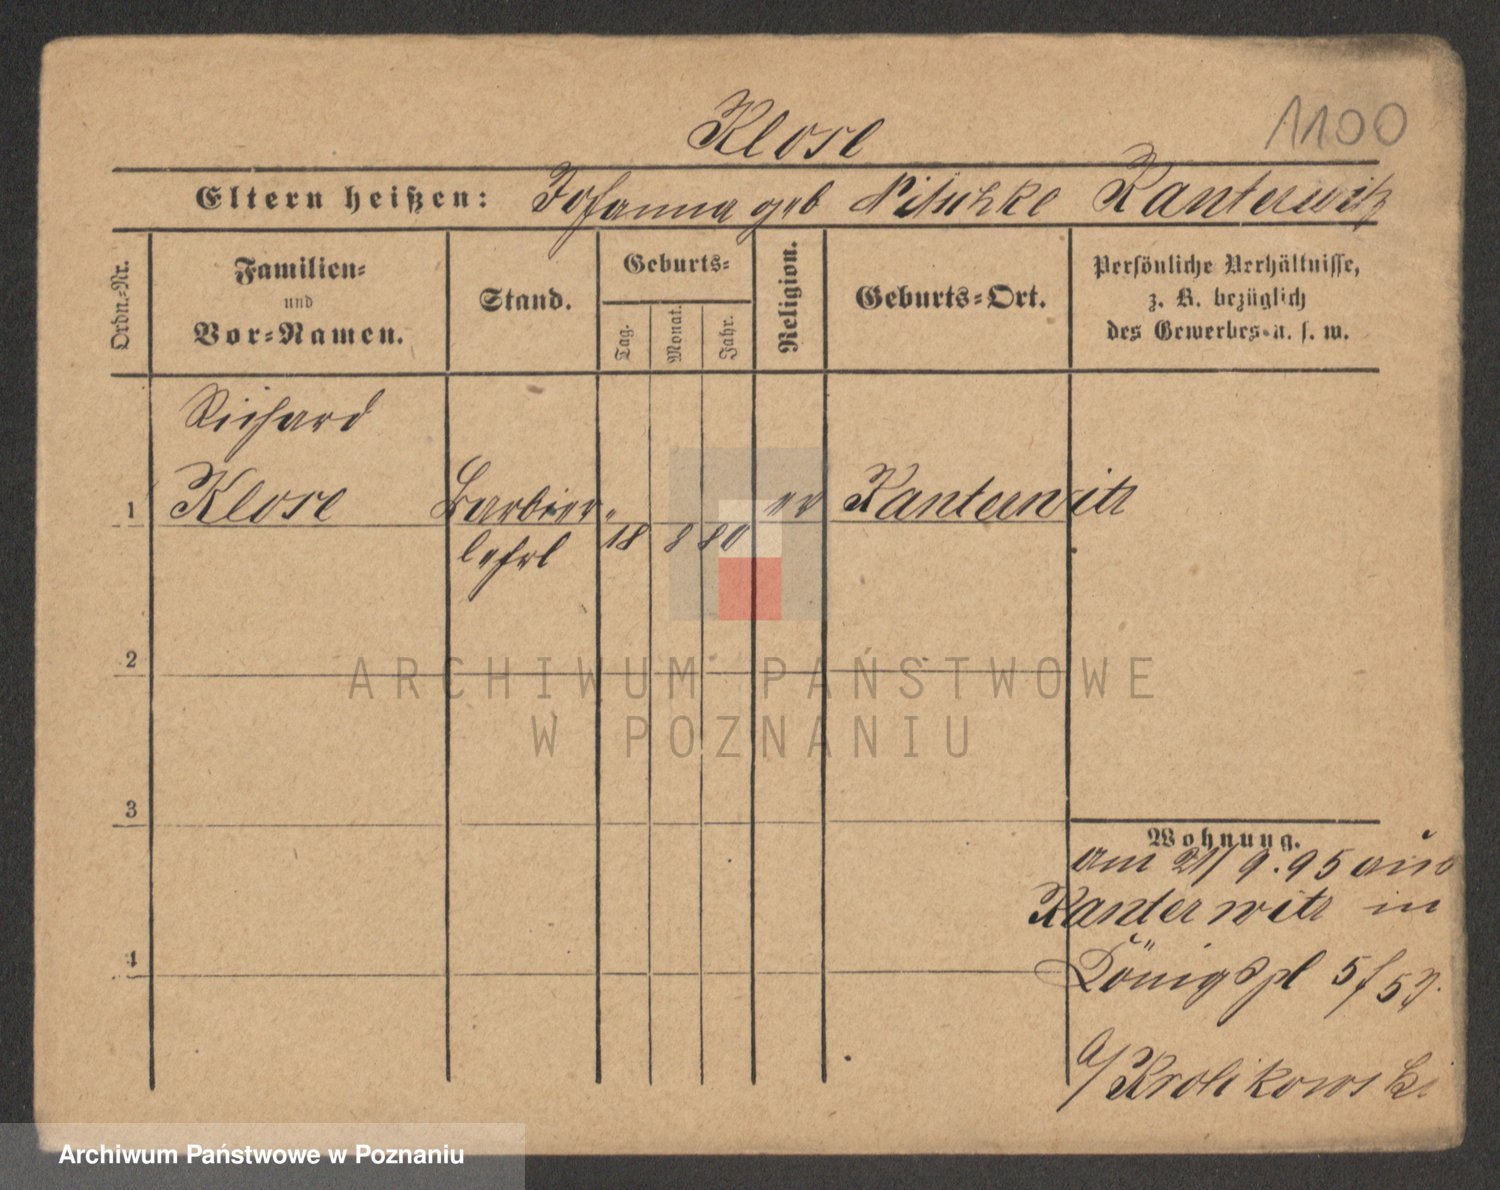 1100
Klose
Eltern heißen: Johanna geb Nitschke Kanterwitz
Ordn.-Nr.
Familien-
und
Vor-Namen.
Stand.
Geburts-
Tag.
Monat.
Jahr.
Religion.
Geburts-Ort.
Persönliche Verhältnisse,
z. B. bezüglich
des Gewerbes u. s. w.
Richard
1 Klose Barbier- ev Kanterwitz
lehrl 18 8 80
2
3
4
Wohnung.
am 21/9.95 aus
Kanterwitz in
Königspl 5 / 5
a/ Krolikowski
ARCHIWUM PAŃSTWOWE
W POZNANIU
Archiwum Państwowe w Poznaniu